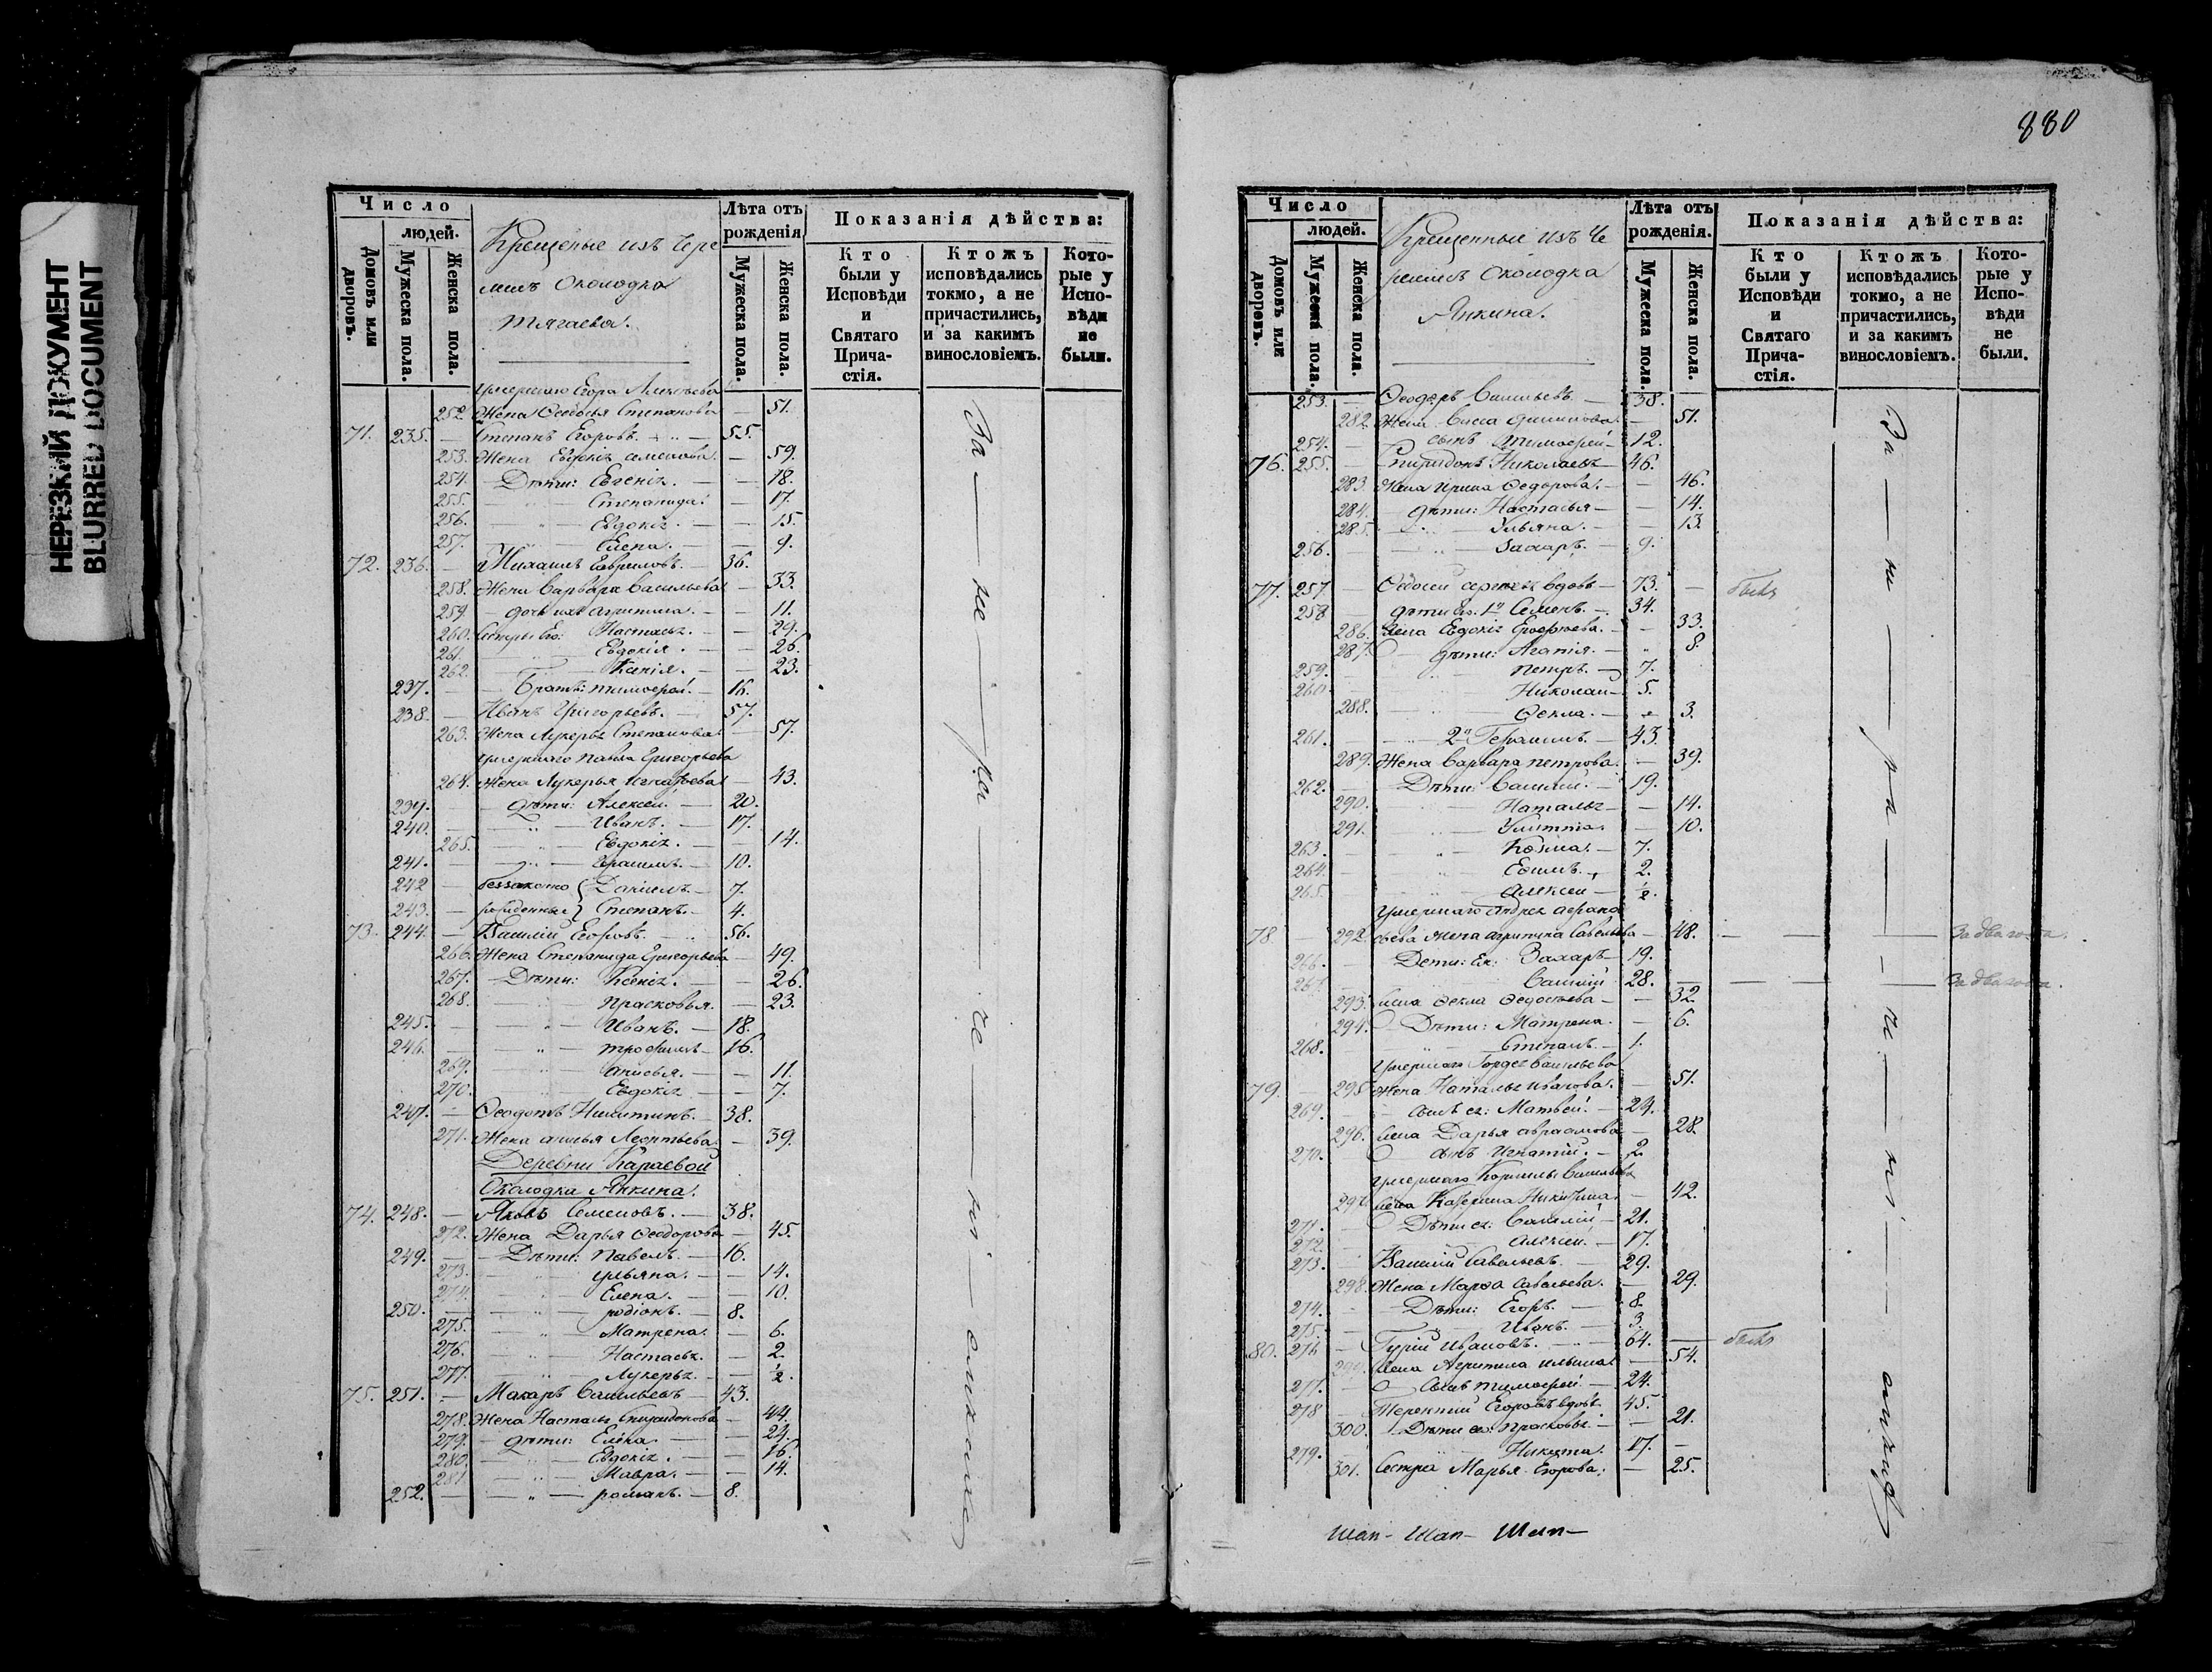 НЕРЕЗКИЙ ДОКУМЕНТ
BLURRED DOCUMENT
Число
людей.
Домовъ или дворовъ.
Мужеска пола.
Женска пола.
Крещеные изъ Чере
мисъ Околодка
Тягаева.
Лѣта отъ рожденія
Мужеска пола.
Женска пола.
Показанія дѣйства:
Кто были у Исповѣди и Святаго Причастія.
Ктожъ исповѣдались токмо, а не причастились, и за какимъ винословіемъ.
Которые у Исповѣди не были.
Умершаго Егора Алексѣева
252. Жена Федосья Степанова — 51.
71. 235. — Степанъ Егоровъ. — 55.
253. Жена Евдокія Семенова. — 59.
254. — Дѣти: Евгенія. — 18.
255. — Степанида. — 17.
256. — Евдокія. — 15.
257. — Елена. — 9.
72. 236. — Михаилъ Гавриловъ. — 36.
258. Жена Варвара Васильева — 33.
259 — дочь ихъ Агрипина. — 11.
260. Сестры Его: Настасья. — 29.
261. Евдокія. — 26.
262. — Ксенія. — 23.
237. — Братъ: Тимофей. — 16.
238. — Иванъ Григорьевъ. — 57.
263. Жена Лукерья Степанова — 57.
Умершаго Павла Григорьева
264. Жена Лукерья Игнатьева — 43.
239. — дѣти: Алексѣй. — 20.
240. — Иванъ. — 17.
265. — Евдокія. — 14.
241. — Герасимъ. — 10.
242 — беззаконно { Даніилъ. — 7.
243. — рожденные } Степанъ. — 4.
73. 244. — Василій Егоровъ. — 56.
266. Жена Степанида Григорьева — 49.
267. — Дѣти: Ксенія. — 26.
268. — Прасковья. — 23.
245. — Иванъ. — 18.
246. — Трофимъ — 16.
269. — Анисья. — 11.
270. — Евдокія — 7.
247. — Феодотъ Никитинъ. — 38.
271. Жена Анисья Леонтьева. — 39.
Деревни Караевой
Околодка Янкина.
74. 248. — Яковъ Семеновъ. — 38.
272. Жена Дарья Феодорова — 45.
249. — Дѣти: Павелъ. — 16.
273. — Ульяна. — 14.
274. — Елена. — 10.
250. — Родіонъ. — 8.
275. — Матрена. — 6.
276. — Настасья. — 2.
277. — Лукерья. — ½.
75. 251. — Макаръ Васильевъ — 43.
278. Жена Настасья Спиридонова — 44.
279. — дѣти: Елена. — 24.
280. — Евдокія. — 16.
281 — Мавра. — 14.
252. — Романъ. — 8.
За — не — ра — че — ні — емъ
880
Число
людей.
Домовъ или дворовъ.
Мужеска пола.
Женска пола.
Крещенные изъ Че
ремисъ Околодка
Янкина.
Лѣта отъ рожденія.
Мужеска пола.
Женска пола.
Показанія дѣйства:
Кто были у Исповѣди и Святаго Причастія.
Ктожъ исповѣдались токмо, а не причастились, и за какимъ винословіемъ.
Которые у Исповѣди не были.
253. — Феодоръ Васильевъ — 38.
282. Жена — 51.
254. — сынъ Тимофей — 12.
76. 255. — Спиридонъ Николаевъ — 46.
283. Жена Ирина Федорова. — 46.
284. — дѣти: Настасья — 14.
285. — Ульяна. — 13.
256. — Захаръ. — 9.
77. 257 — Федосій Сергѣевъ вдовъ — 73. — былъ
258 — дѣти Ев. 1й Семенъ. — 34.
286. Жена Евдокія — 33.
287. — дѣти: Агапія. — 8.
259. — Петръ. — 7.
260. — Николай — 5.
288. — Фекла. — 3.
261. — 2й Герасимъ. — 43.
289. Жена Варвара Петрова. — 39.
262. — Дѣти: Василій. — 19.
290. — Наталья — 14.
291. — 10.
263. — Козма. — 7.
264. — Ефимъ. — 2.
265. — Алексѣй — ½.
Умершаго Андрея Афана
78. — 292. сьева жена Агрипина Савельева — 48. — За два года.
266. — Дети: Ея: Захаръ — 19.
267. — Василій — 28. — За два года.
293. Жена Фекла — 32.
294. — Дѣти: Матрена. — 6.
268. — Степанъ — 1.
Умершаго Гордея Васильева
79. — 295. Жена Наталья Иванова. — 51.
269. — сынъ ея: Матвей. — 24.
296. Жена Дарья Авраамова — 28.
270. — сынъ Игнатій. — 2.
Умершаго Корнилы Васильева
297. Жена Катерина Никитина — 42.
271. — Дѣти ея: Василій — 21.
272. — Алексѣй. — 17.
273. — Василій Савельевъ. — 29.
298. Жена Марфа Савельева. — 29.
274. — Дѣти: Егоръ. — 8.
275. — Иванъ. — 3.
80. 276 — Гурій Ивановъ. — 64. — былъ
299. Жена Агрипина Ильина — 54.
277. — Сынъ Тимофей — 24.
278 — Терентий Егоровъ вдовъ — 45.
300. Дѣти ев: Прасковья — 21.
279. — Никита. — 17.
301. Сестра Марья Егорова: — 25.
За — не — ра — че — ні — емъ
Шап- Шап- Шап-